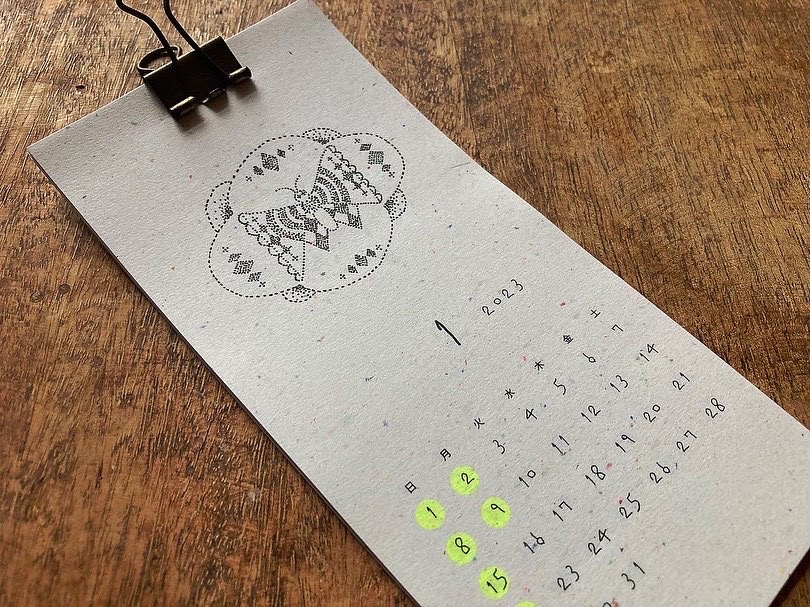 1 2023
日 月 火 水 木 金 土
1 2 3 4 5 6 7
8 9 10 11 12 13 14
15 16 17 18 19 20 21
23 24 25 26 27 28
31